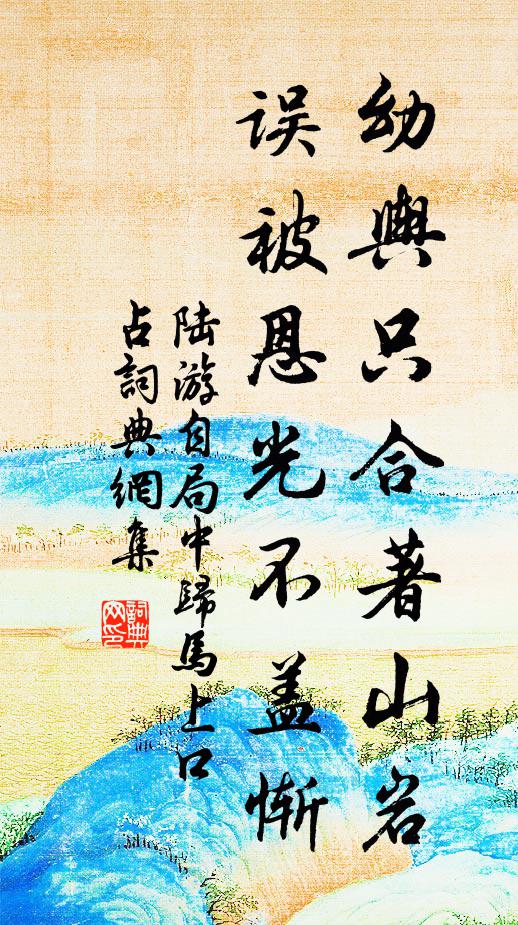 幼輿只合著山岩
误被恩光不盖惭
陆游自局中歸馬上口
占詞典網集
詞典
网印